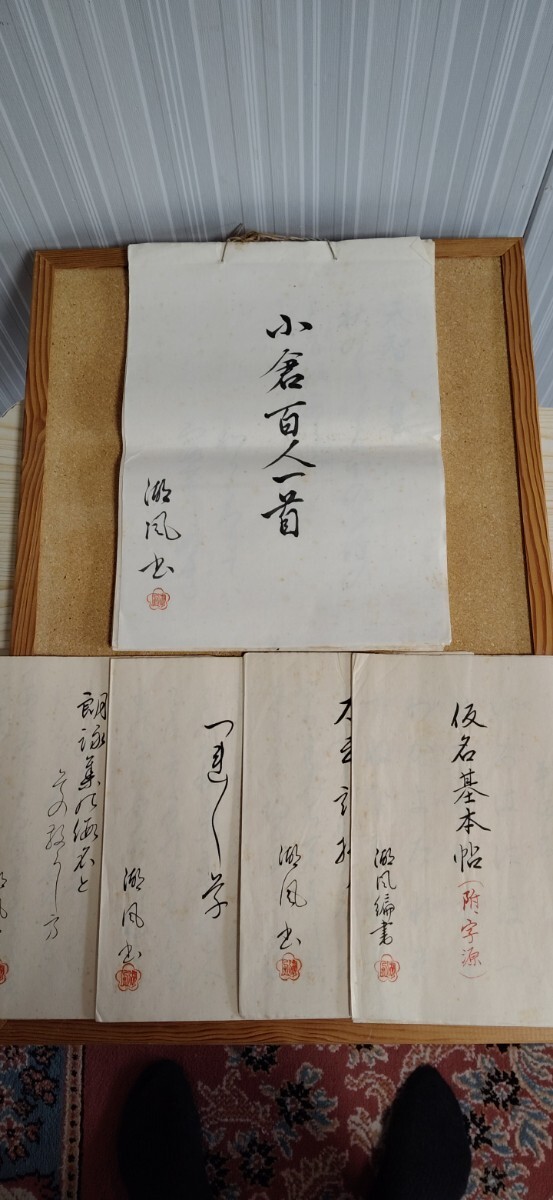 小倉百人一首
湖風書
仮名基本帖(附.字源)
湖風編書
湖風書
つれ〱草
湖風書
朗詠集の仮名と
その散らし方